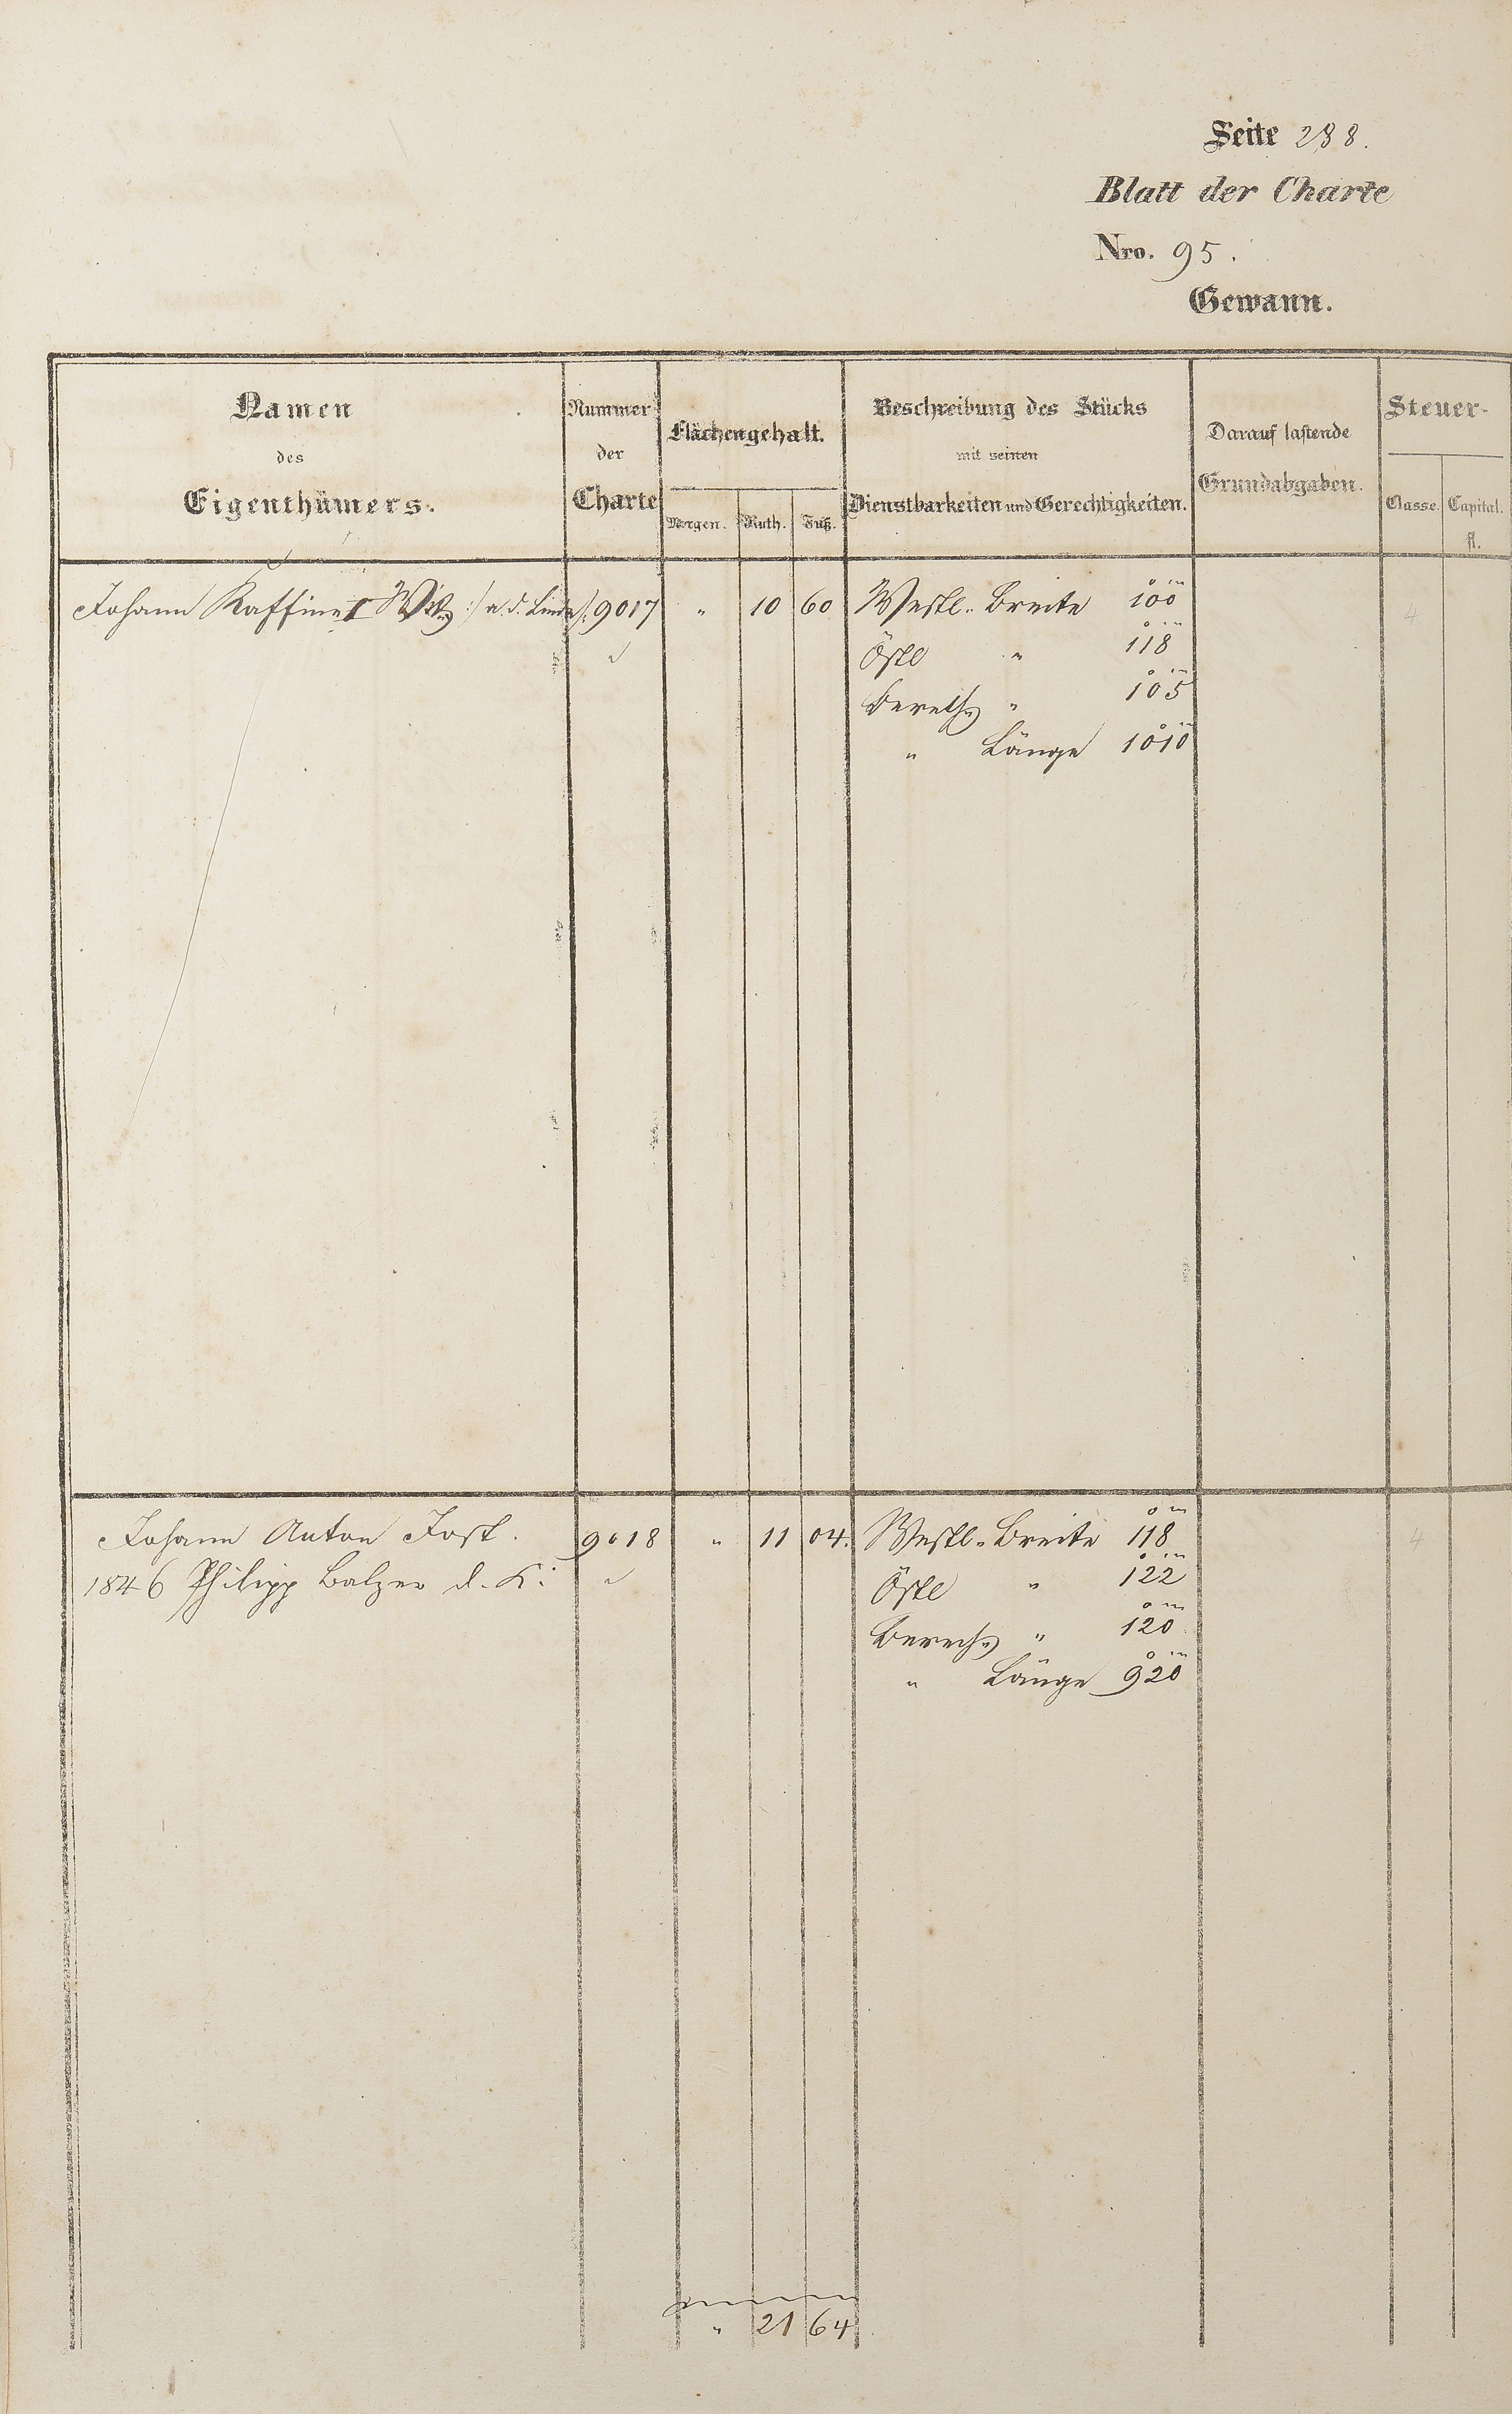 Seite 288.
Blatt der Charte
Nro. 95.
Gewann.
Namen des Eigenthümers.
Nummer der Charte
Flächengehalt.
Morgen. Ruth. Fuß.
Beschreibung des Stücks mit seinen Dienstbarkeiten und Gerechtigkeiten.
Darauf lastende Grundabgaben.
Steuer-
Classe. Capital.
fl.
Johann Raffine I Wtb :/ a. d. Linde/: 9017 " 10 60 Westl. Breite 100 4
Östl " 118
Berechn " 105
" Länge 1010
Johann Anton Jost. 9018 " 11 04. Westl. Breite 118 4
1846 Philipp Balzer d. K: Östl " 122
Berechn " 120
" Länge 920
" 21 64